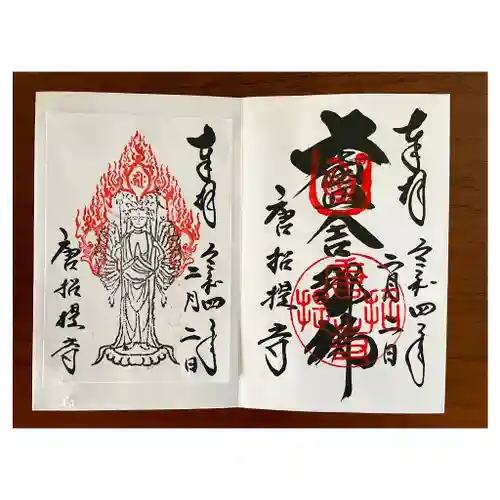 奉拝
盧舎那佛
令和四年
六月二日
唐招提寺
奉拝
令和四年
二月二日
唐招提寺